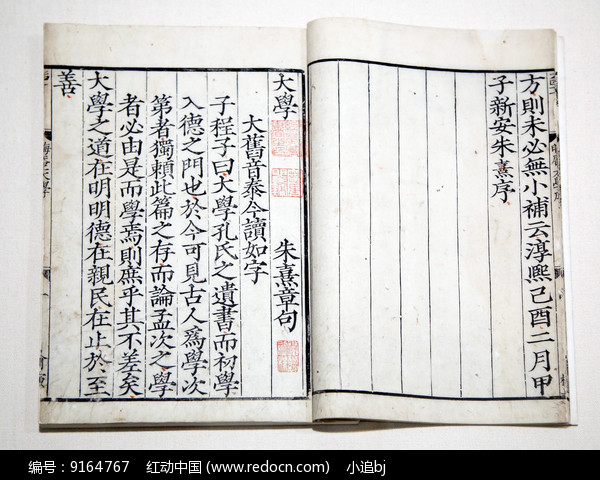 方則未必無小補云淳熙己酉二月甲
子新安朱熹序
大學
朱熹章句
大舊音泰今讀如字
子程子曰大學孔氏之遺書而初學
入德之門也於今可見古人爲學次
第者獨賴此篇之存而論孟次之學
者必由是而學焉則庶乎其不差矣
大學之道在明明德在親民在止於至
善
编号：9164767 红动中国 (www.redocn.com) 小追bj